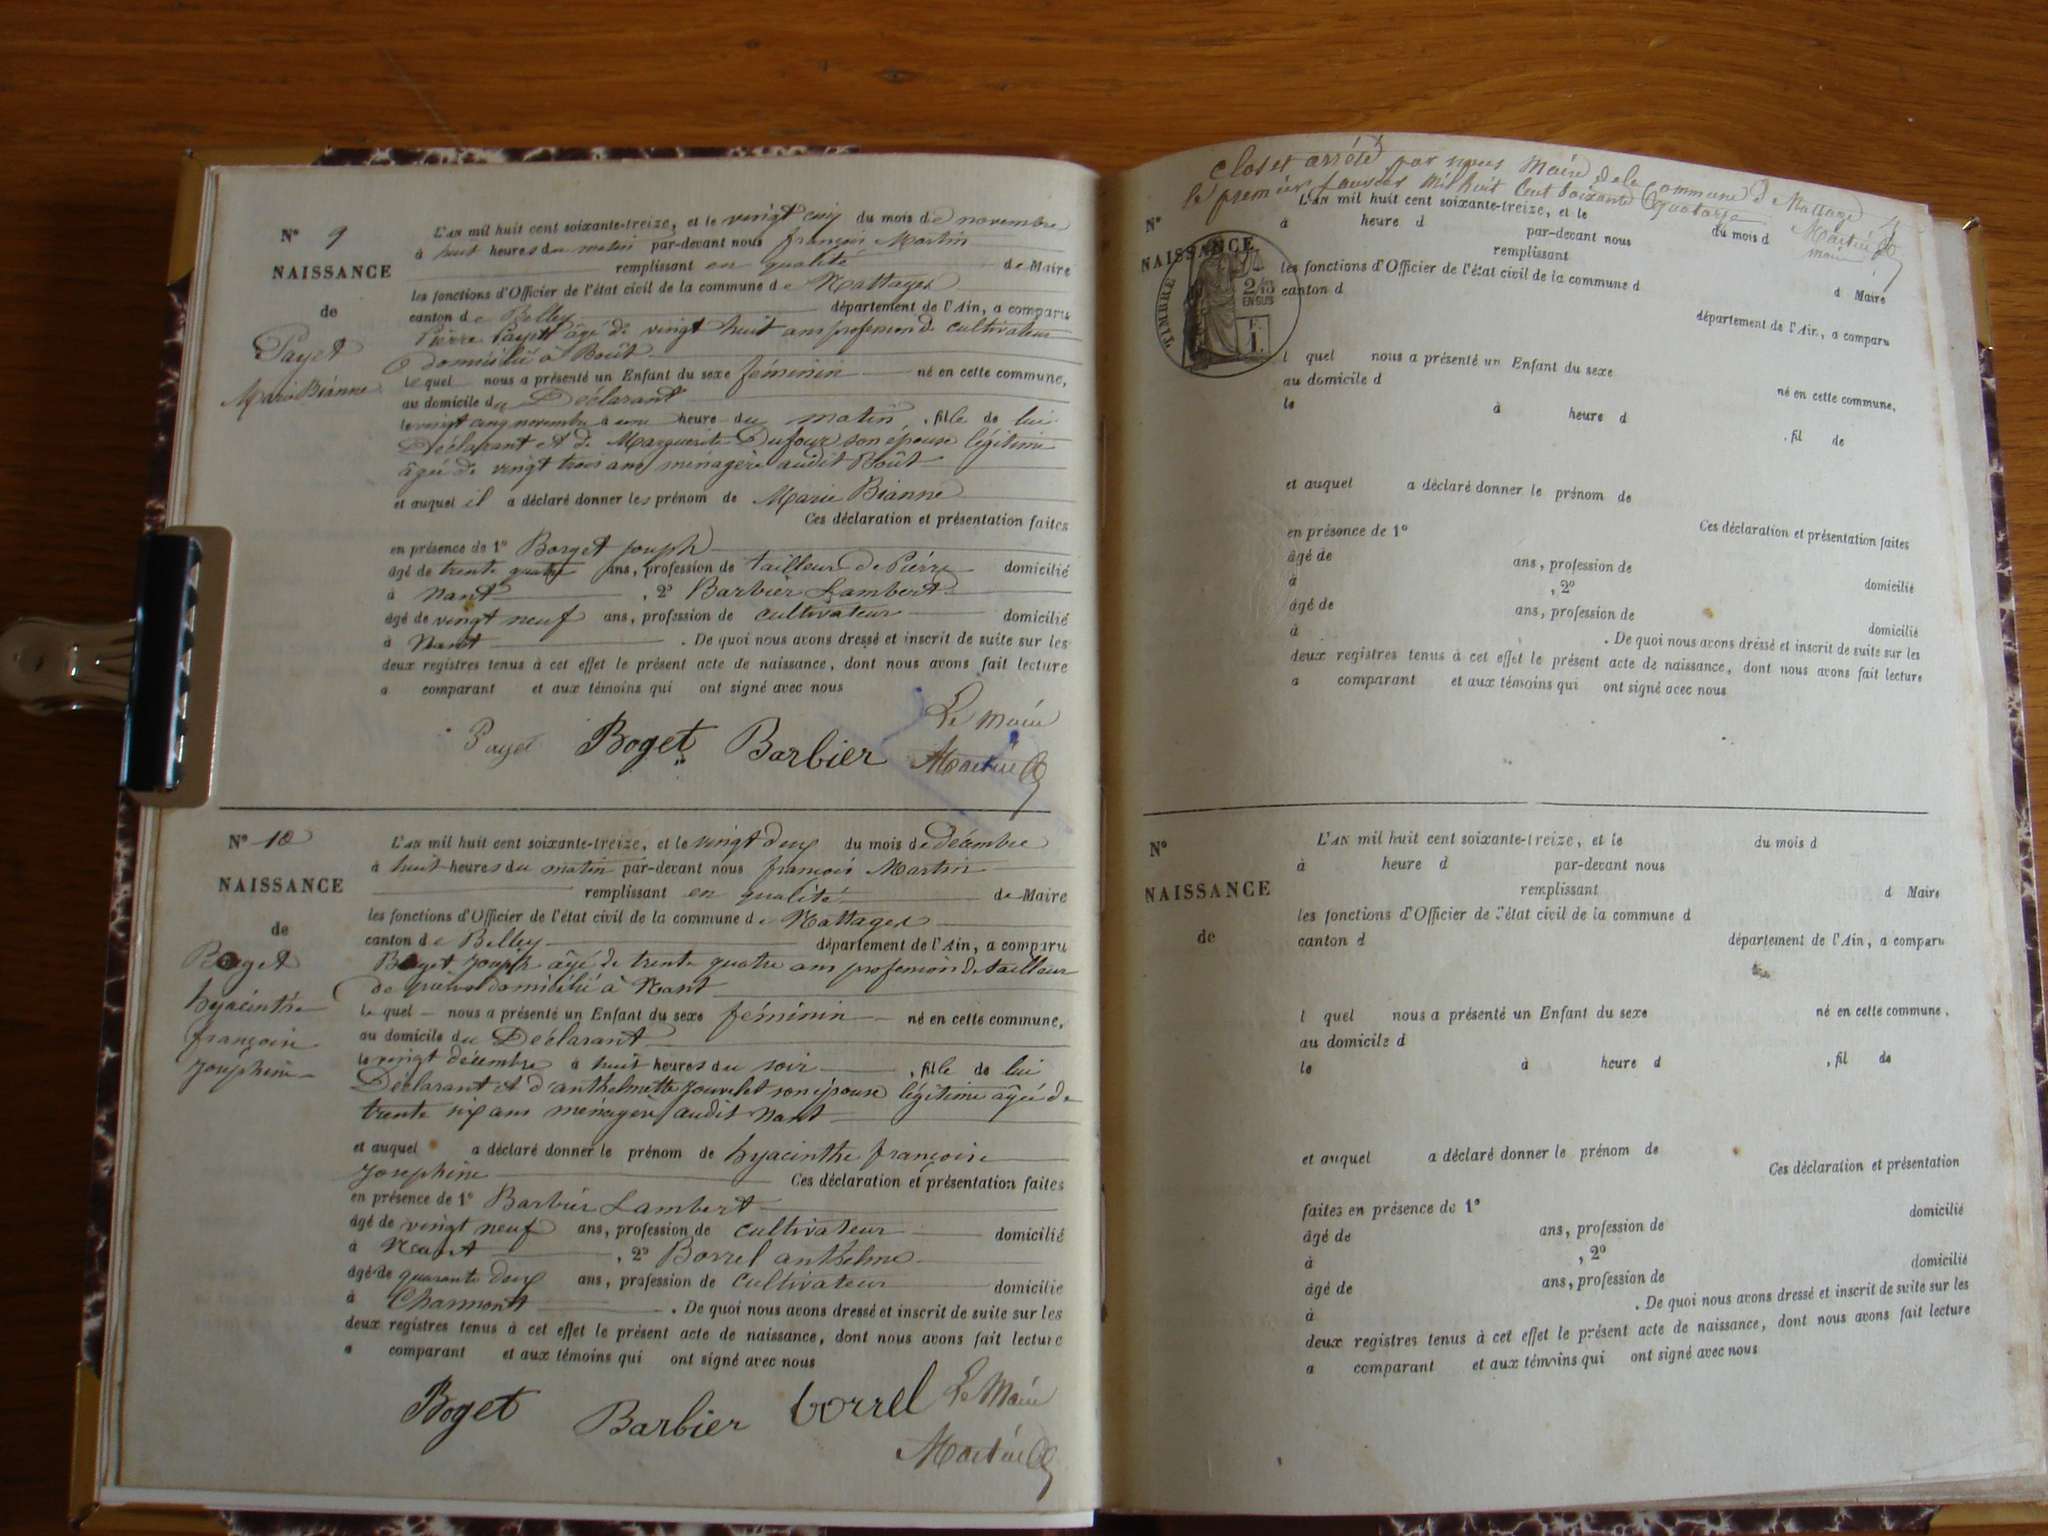 N° 9
NAISSANCE
de
Payet
Marie Bianne
L'AN mil huit cent soixante-treize, et le vingt cinq du mois de novembre
à huit heures du matin par-devant nous françois Martin
remplissant en qualité de Maire
les fonctions d'Officier de l'état civil de la commune de Nattages
canton de Belley département de l'Ain, a comparu
Pierre Payet âgé de vingt huit ans profession de cultivateur
domicilié à Boût
lequel nous a présenté un Enfant du sexe féminin né en cette commune,
au domicile du Déclarant
le vingt cinq novembre à une heure du matin, fille de lui
Déclarant et de Marguerite Dufour son épouse légitime
âgée de vingt trois ans ménagère audit Boût
et auquel il a déclaré donner les prénom de Marie Bianne
Ces déclaration et présentation faites
en présence de 1° Borget Joseph
âgé de trente quatre ans, profession de tailleur de Pierre domicilié
à Nant, 2° Barbier Lambert
âgé de vingt neuf ans, profession de cultivateur domicilié
à Nant. De quoi nous avons dressé et inscrit de suite sur les
deux registres tenus à cet effet le présent acte de naissance, dont nous avons fait lecture
a comparant et aux témoins qui ont signé avec nous
Le maire
Payet Boget Barbier Martin
N° 10
NAISSANCE
de
Boget
hyacinthe
françoise
Josephine
L'AN mil huit cent soixante-treize, et le vingt deux du mois de décembre
à huit heures du matin par-devant nous françois Martin
remplissant en qualité de Maire
les fonctions d'Officier de l'état civil de la commune de Nattages
canton de Belley département de l'Ain, a comparu
Boget Joseph âgé de trente quatre ans profession de tailleur
de pierre domicilié à Nant
lequel nous a présenté un Enfant du sexe féminin né en cette commune,
au domicile du Déclarant
le vingt décembre à huit heures du soir, fille de lui
Déclarant et d'anthelmette Jouvelet son épouse légitime âgée de
trente six ans ménagère audit Nant
et auquel a déclaré donner le prénom de hyacinthe françoise
Josephine Ces déclaration et présentation faites
en présence de 1° Barbier Lambert
âgé de vingt neuf ans, profession de cultivateur domicilié
à Nant, 2° Borrel anthelme
âgé de quarante deux ans, profession de cultivateur domicilié
à Charmont. De quoi nous avons dressé et inscrit de suite sur les
deux registres tenus à cet effet le présent acte de naissance, dont nous avons fait lecture
a comparant et aux témoins qui ont signé avec nous
Boget Barbier borrel Le Maire
Martin
Clos et arrété par nous Maire de la Commune de Nattages
le premier Janvier Mil huit Cent Soixante Quatorze
Martin
maire
N°
NAISSANCE
TIMBRE
2/10
EN SUS
F.
1.
L'AN mil huit cent soixante-treize, et le du mois d
à heure d par-devant nous
remplissant d Maire
les fonctions d'Officier de l'état civil de la commune d
canton d département de l'Ain, a comparu
l quel nous a présenté un Enfant du sexe né en cette commune,
au domicile d
le à heure d , fil de
et auquel a déclaré donner le prénom de
Ces déclaration et présentation faites
en présence de 1°
âgé de ans, profession de domicilié
à , 2°
âgé de ans, profession de domicilié
à . De quoi nous avons dressé et inscrit de suite sur les
deux registres tenus à cet effet le présent acte de naissance, dont nous avons fait lecture
a comparant et aux témoins qui ont signé avec nous
N°
NAISSANCE
de
L'AN mil huit cent soixante-treize, et le du mois d
à heure d par-devant nous
remplissant d Maire
les fonctions d'Officier de l'état civil de la commune d
canton d département de l'Ain, a comparu
l quel nous a présenté un Enfant du sexe né en cette commune,
au domicile d
le à heure d , fil de
et auquel a déclaré donner le prénom de
Ces déclaration et présentation
faites en présence de 1° domicilié
âgé de ans, profession de
à , 2° domicilié
âgé de ans, profession de
à . De quoi nous avons dressé et inscrit de suite sur les
deux registres tenus à cet effet le présent acte de naissance, dont nous avons fait lecture
a comparant et aux témoins qui ont signé avec nous